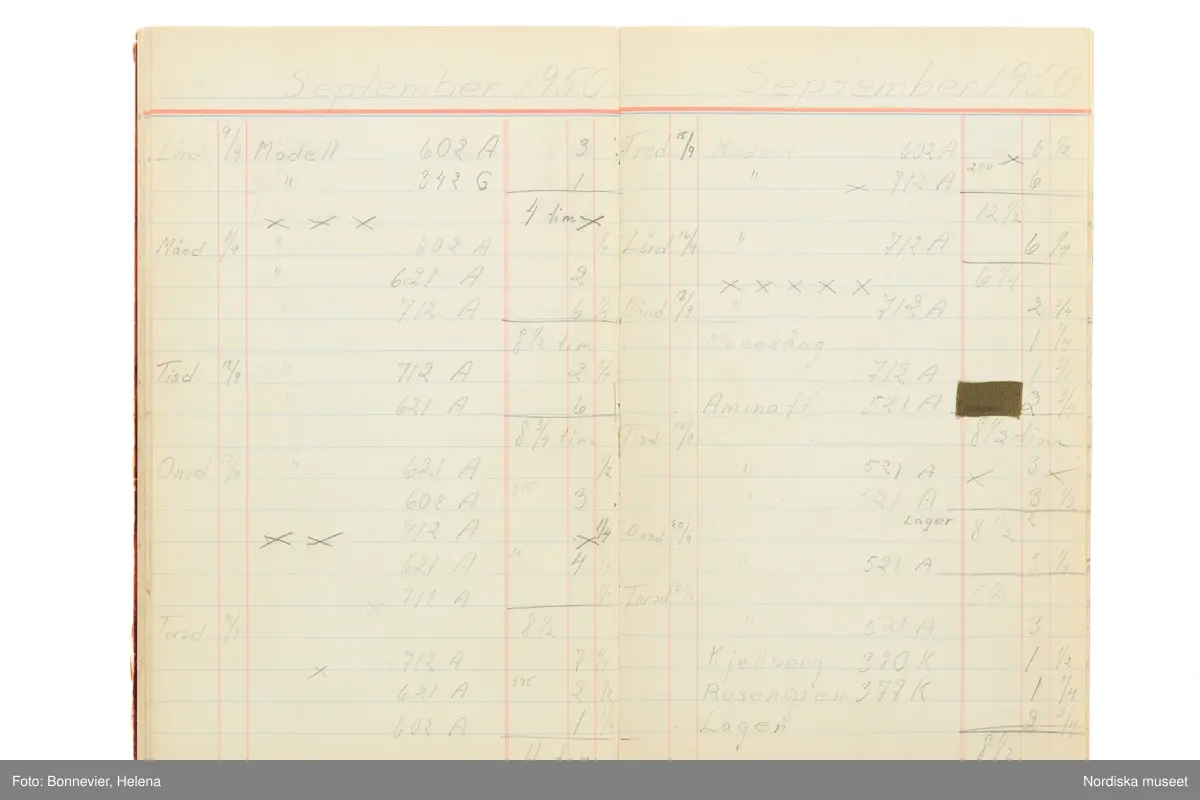 September 1950
Lörd 9/9 Modell 602 A 3
" 342 G 1
4 tim
Månd " 602 A
" 621 A 2
712 A 6
8 1/2 tim
Tisd 12/9 " 712 A 2
621 A 6
8 3/4 tim
Onsd " 621 A 1/2
602 A 3
712 A 1/4
621 A 4
712 A
Torsd 8 1/2
712 A 7
621 A 2 1/2
602 A 1 1/4
September 1950
Fred 15/9 Modell 602 A 6 1/2
" 712 A 6
12 1/2
Lörd 16/9 " 712 A 6 1/4
6 1/4
Månd " 712 A 2 1/4
Manekäng 1 1/4
712 A 1 3/4
Aminoff 521 A 3 3/4
Tisd 8 1/2 tim
" 521 A 3
" 521 A 3 1/2
Lager 2
Onsd 20/9 8 1/2
" 521 A 5 1/4
Torsd 5 1/4
" 521 A 3
Kjellberg 320 K 1 1/2
Rosengren 377 K 1 1/4
Lager 2 3/4
8 1/2
Foto: Bonnevier, Helena
Nordiska museet